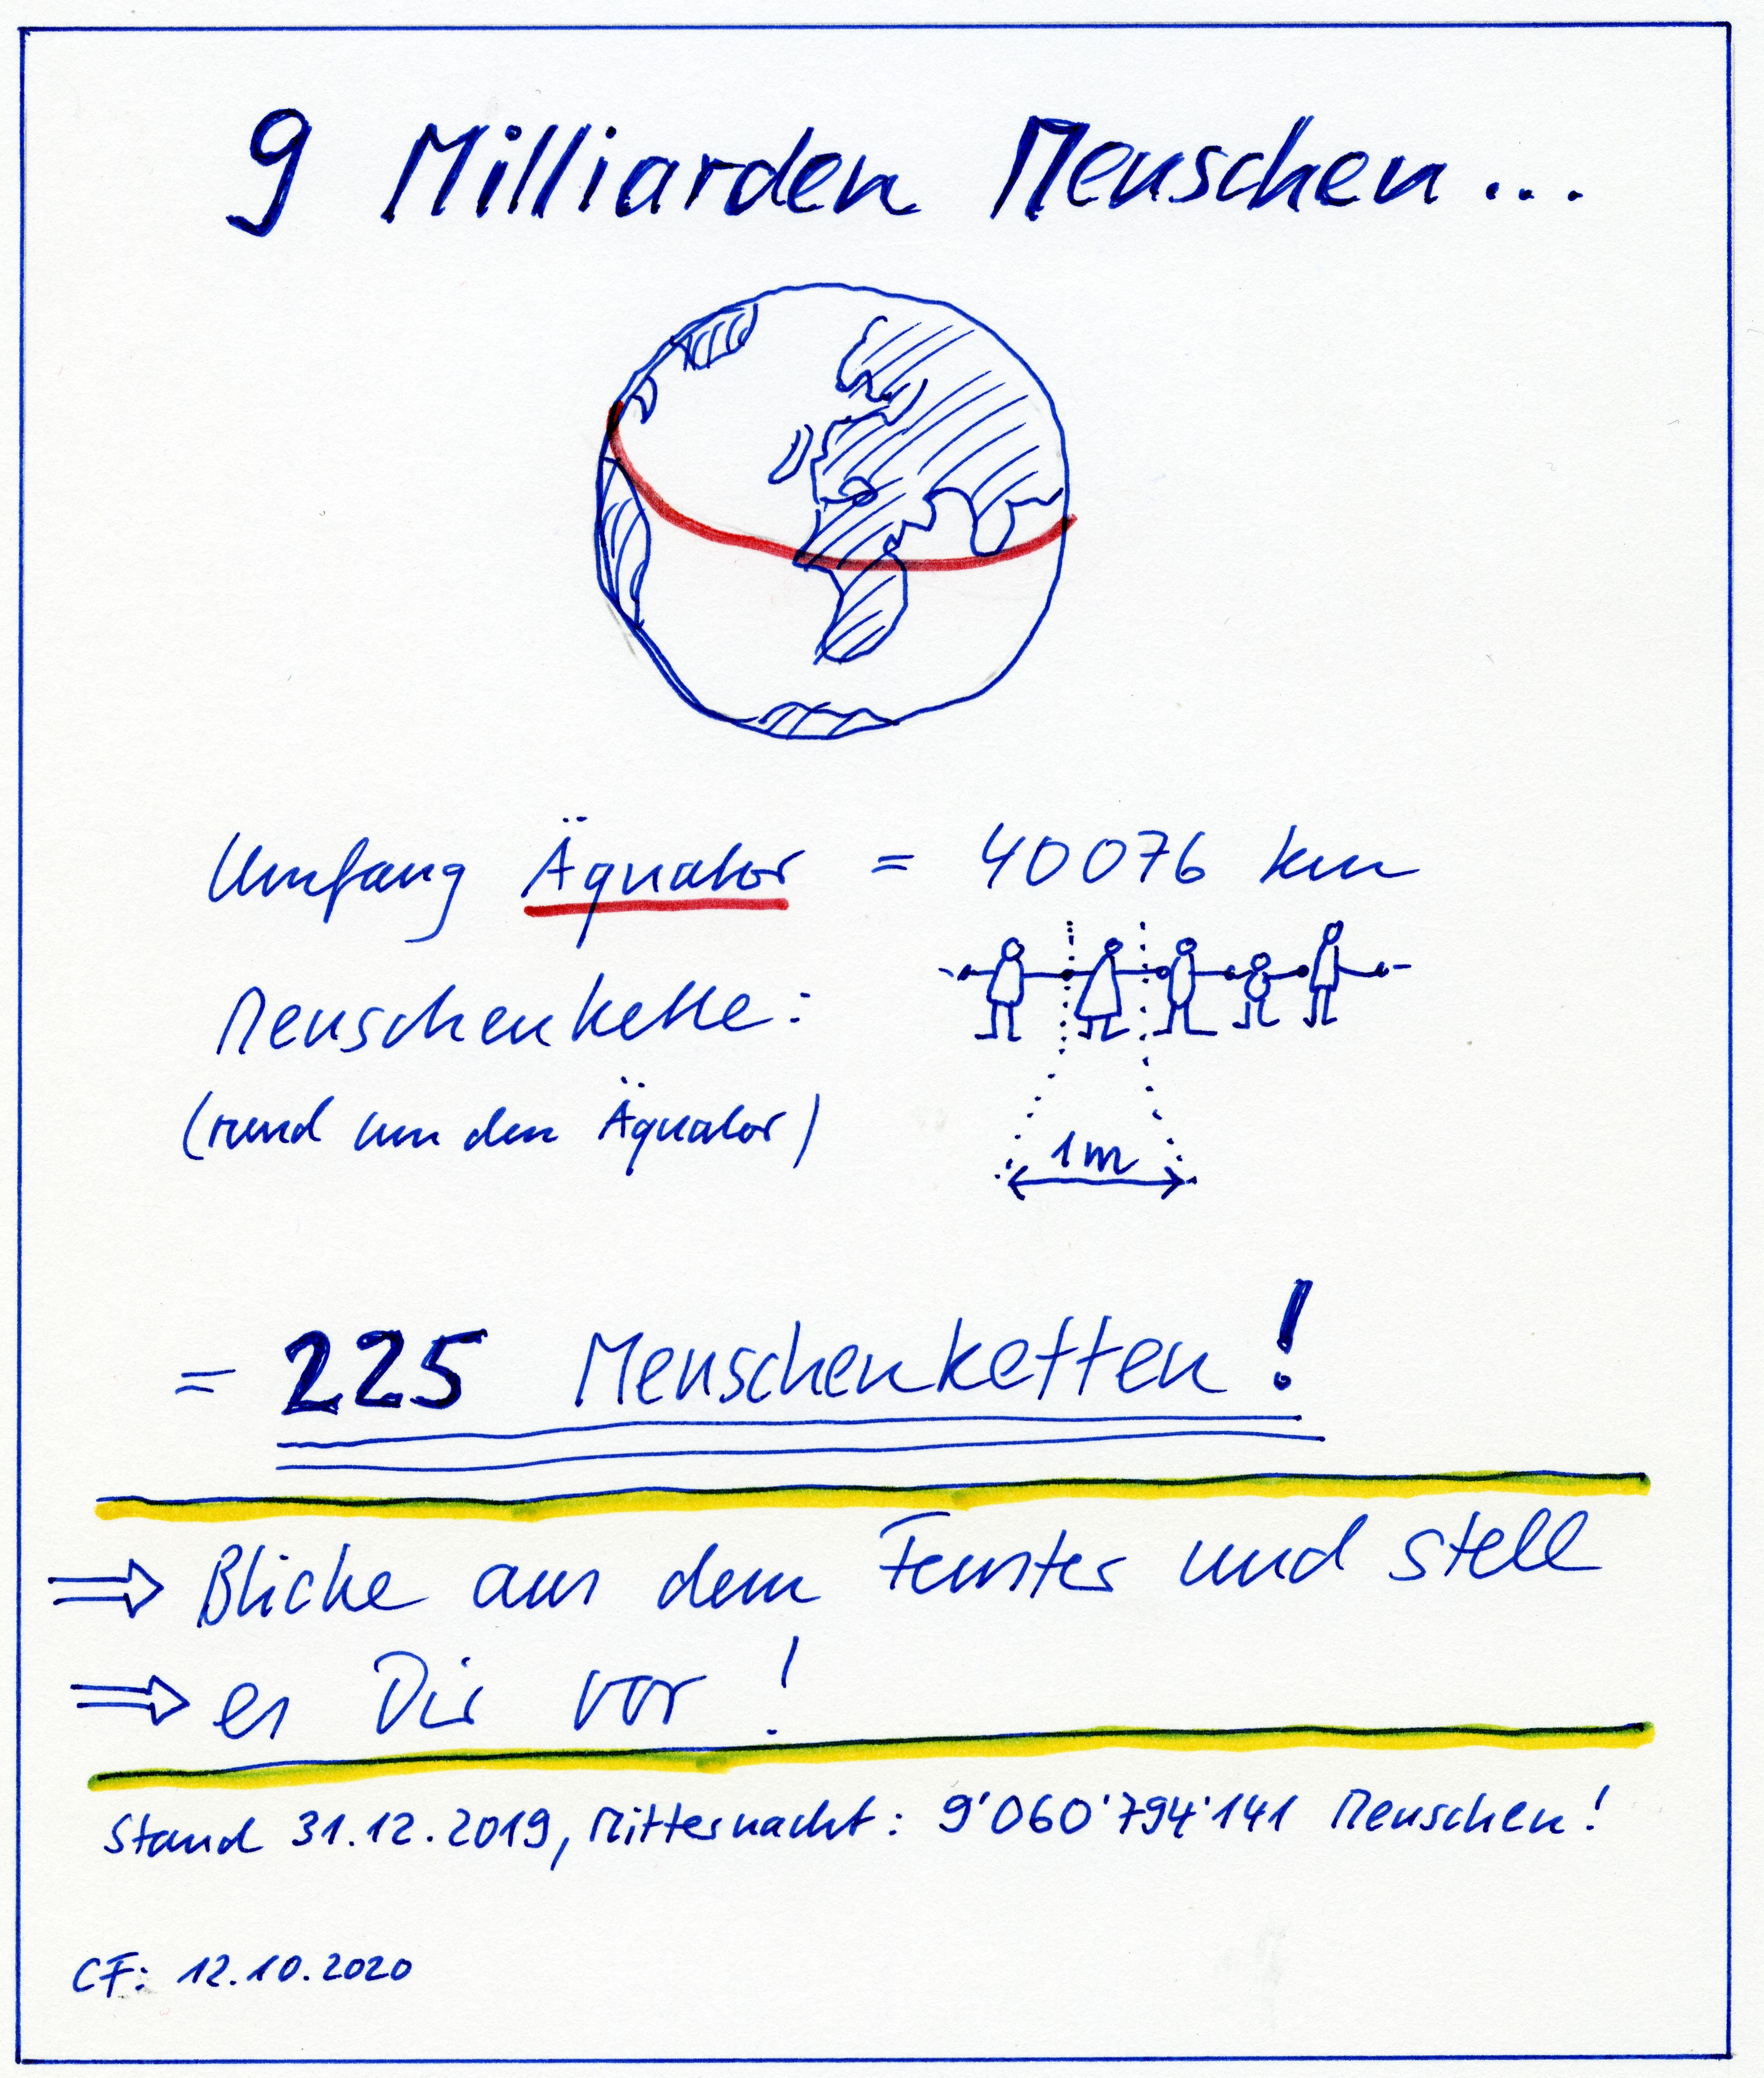 9 Milliarden Menschen...
Umfang Äquator = 40076 km
Menschenkette:
(rund um den Äquator)
1m
= 225 Menschenketten!
⇒ Blicke aus dem Fenster und stell
⇒ es Dir vor!
Stand 31.12.2019, Mitternacht: 9'060'794'141 Menschen!
CF: 12.10.2020